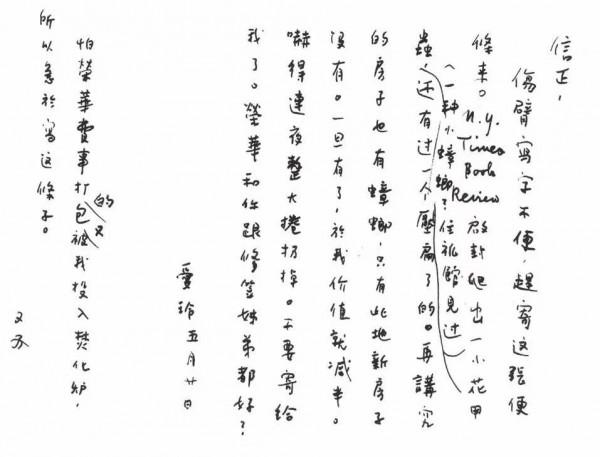 信正,
傷臂寫字不便,趕寄这張便
條来。N.Y. Times Book Review 啟封爬出一小花甲
(一种小蟑螂?住旅館見过)
蟲,还有过一个壓扁了的。再講究
的房子也有蟑螂,只有此地新房子
沒有。一旦有了,於我价值就减半。
嚇得連夜整大捲扔掉。不要寄給
我了。榮華和你跟修笠姊弟都好?
愛玲五月廿日
怕榮華費事打包的又被我投入焚化炉,
所以急於寫这條子。
又及